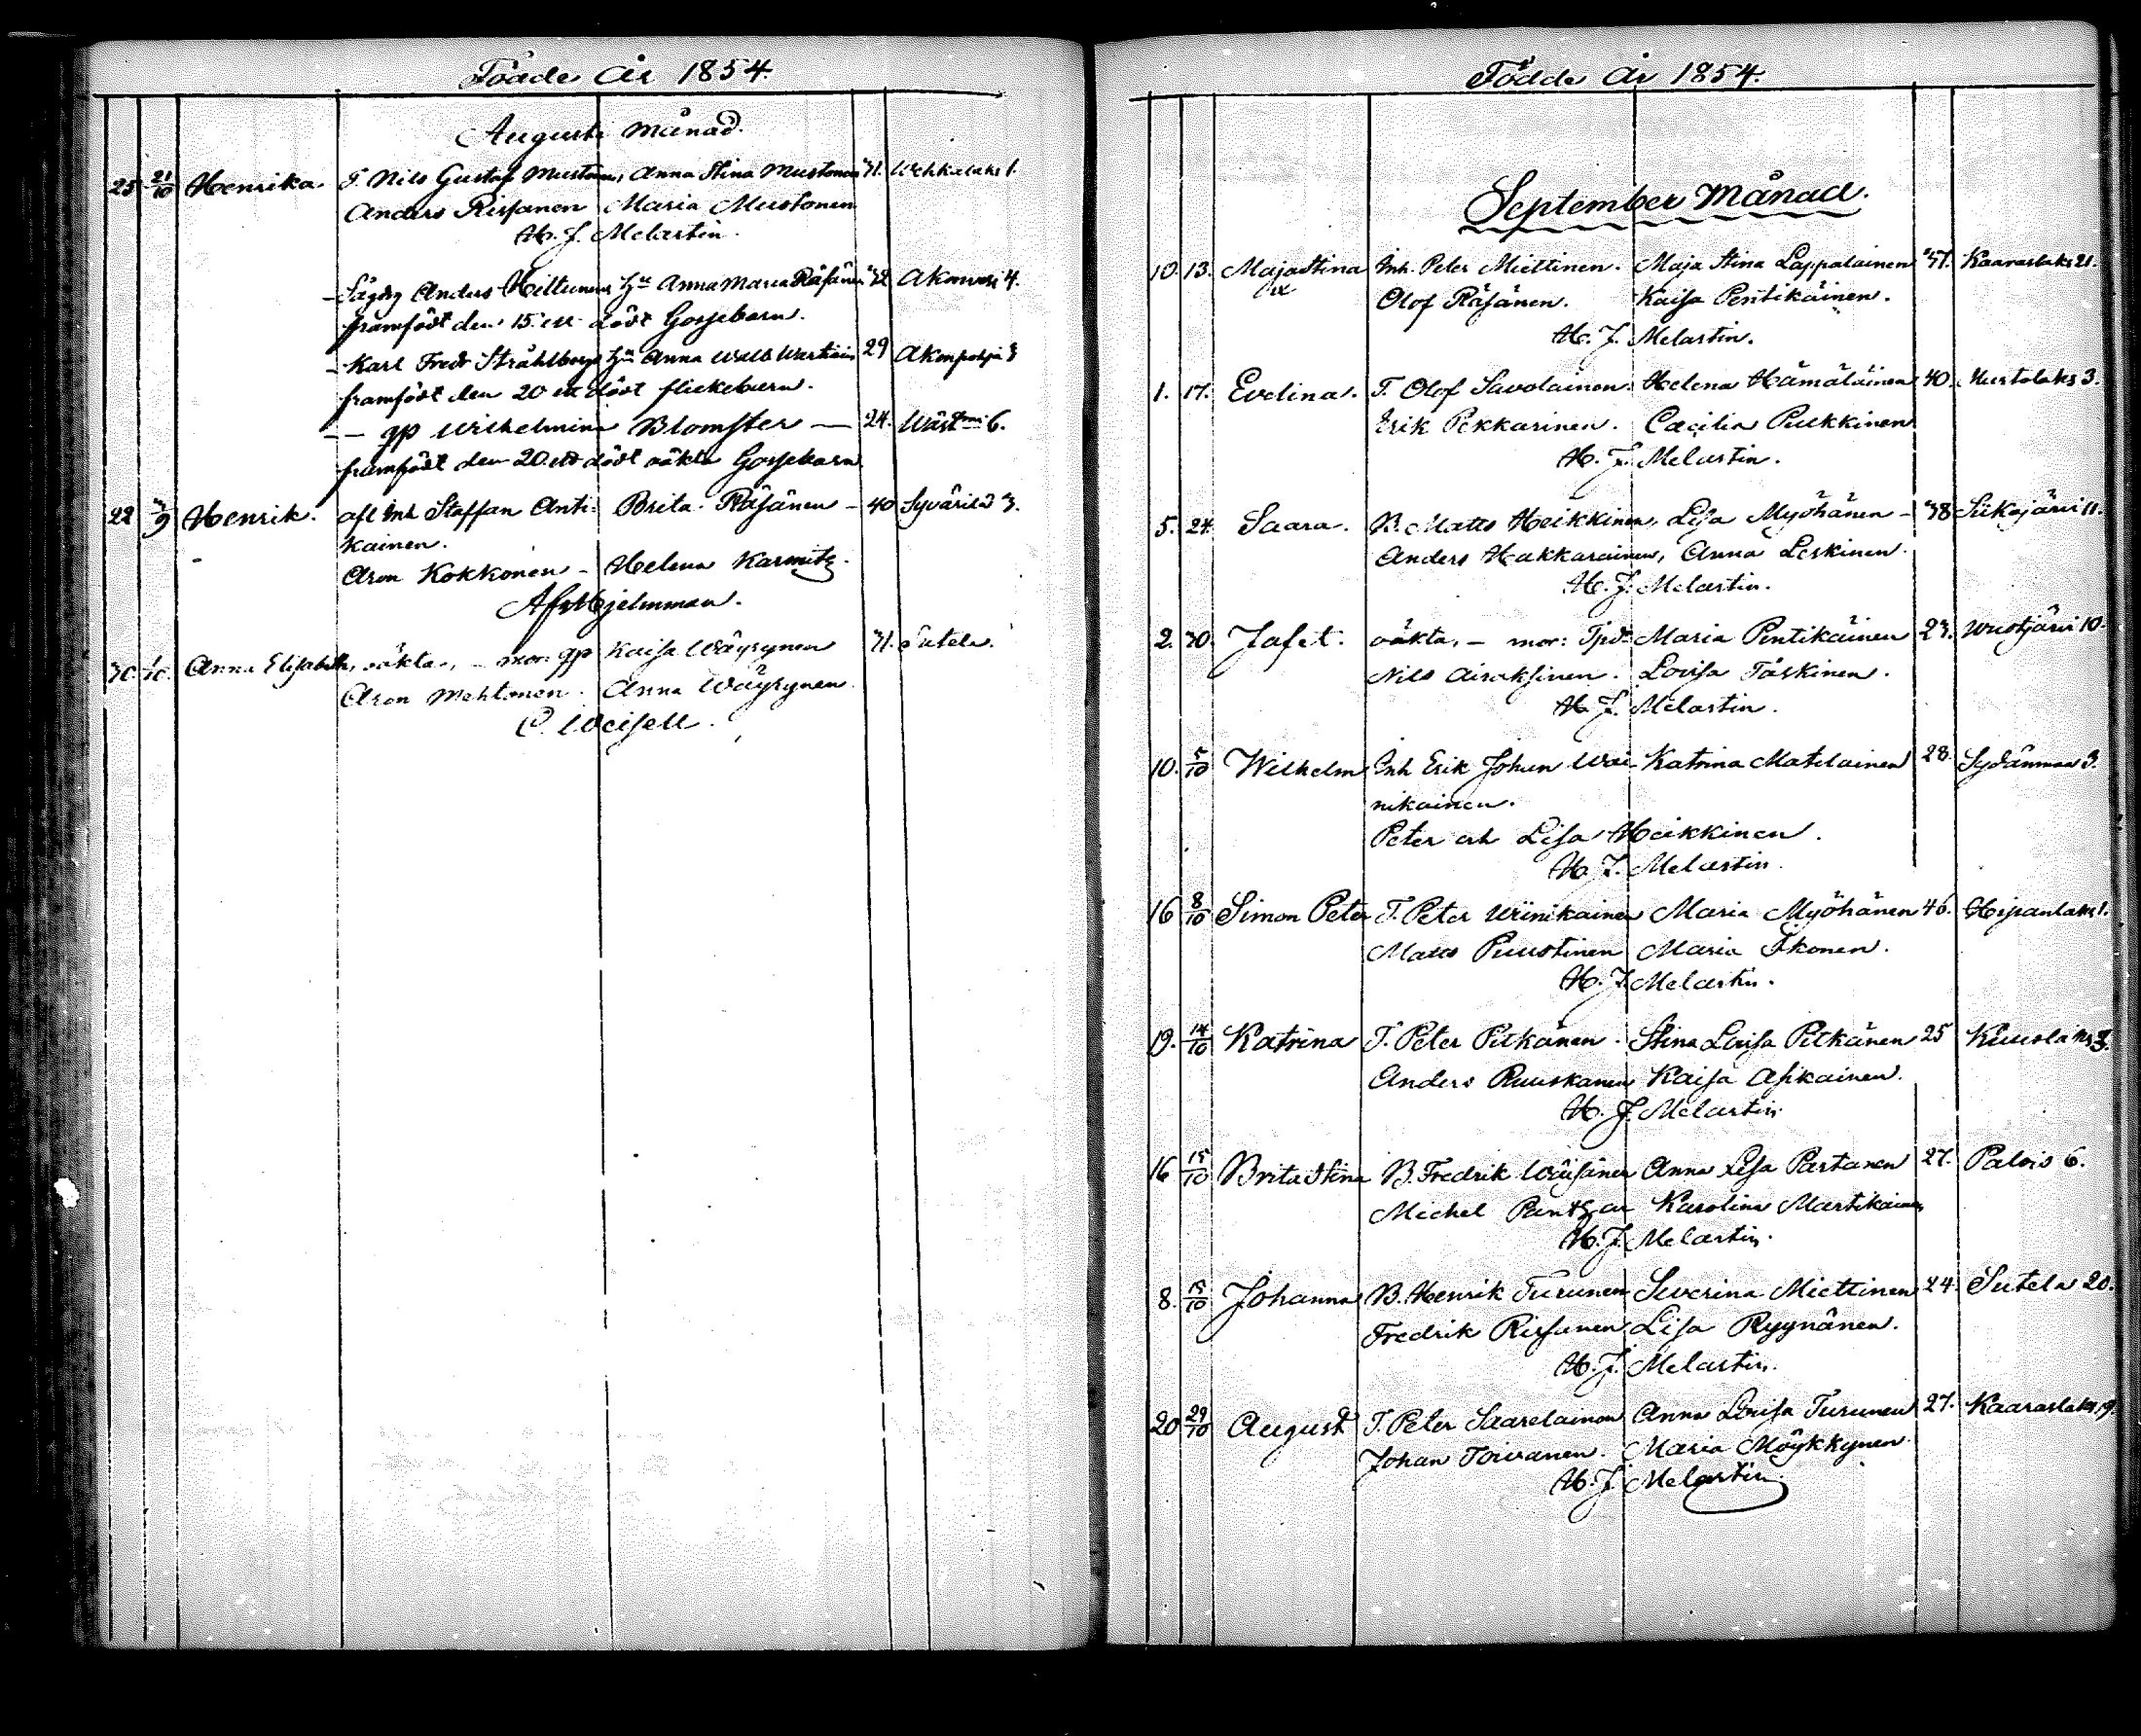 Födde År 1854.
Augusti Månad.
25 21/10 Henrika. T. Nils Gustaf Mustonen, Anna Stina Mustonen 31. Wehkalaks 1.
Anders Rissanen Maria Mustonen
H. J. Melartin.
Anders Hiltunens Hu Anna Maria Räsänen 32 Akonvesi 4.
framfödt den 15 dödt Gossebarn.
- Karl Fredr Stråhlbergs Hu Anna 29 Akonpohja 3
framfödt den 20 dödt flickebarn.
- - qp Wilhelmina Blomster - 24. 6.
framfödt den 20 dödt oäkta Gossebarn
22 3/9 Henrik. afl Inh Staffan Anti- Brita Räsänen - 40 Syvärilä 3.
kainen.
Aron Kokkonen - Helena Karmitz.
Hjelmman.
30 1/10. Anna Elisabeth, oäkta, - mor: qp Kaisa Wäyrynen 31. Sutela.
Aron Mehtonen. Anna Wäyrynen
C. Weisell.
Födde År 1854.
September Månad.
10. 13. Maja Stina Inh. Peter Miettinen. Maja Stina Lappalainen 37. Kaavaslaks 21.
Olof Räsänen. Kaisa Pentikäinen.
H. J. Melartin.
1. 17. Evelina. T. Olof Savolainen. Helena Hämäläinen 40. Mustolaks 3.
Erik Pekkarinen. Cæcilia Pukkinen
H. J. Melartin.
5. 24. Saara. B. Matts Heikkinen, Lisa Myöhänen - 38 Siikajärvi 11.
Anders Hakkarainen, Anna Leskinen.
H. J. Melartin.
2. 30. Jafet. oäkta, - mor: Maria Pentikäinen 23. Wuotjärvi 10.
Nils Airaksinen. Lovisa Täskinen.
H. J. Melartin.
10. 5/10 Wilhelm Inh Erik Johan Wai- Katrina Matilainen 28. Sydänmaa 3.
nikainen.
Peter och Lisa Heikkinen.
H. J. Melartin
16 8/10 Simon Peter T. Peter Wiinikainen Maria Myöhänen 46. Hipanlaks 1.
Matts Puustinen Maria Ikonen.
H. J. Melartin.
19. 14/10 Katrina T. Peter Pitkänen. Stina Lovisa Pitkänen 25
Anders Ruuskanen Kaisa Asikainen.
H. J. Melartin
16 15/10 Brita Stina B. Fredrik Wäisänen Anna Lisa Partanen 27. Palois 6.
Michel Pantzar Karolina Martikainen
H. J. Melartin.
8. 15/10 Johanna B. Henrik Turunen Severina Miettinen 24. Sutela 20.
Fredrik Rissanen Lisa Ryynänen.
H. J. Melartin.
20 29/10 August T. Peter Saarelainen Anna Lovisa Turunen 27. Kaavaslaks 19.
Johan Toivanen. Maria Möykkynen
H. J. Melartin